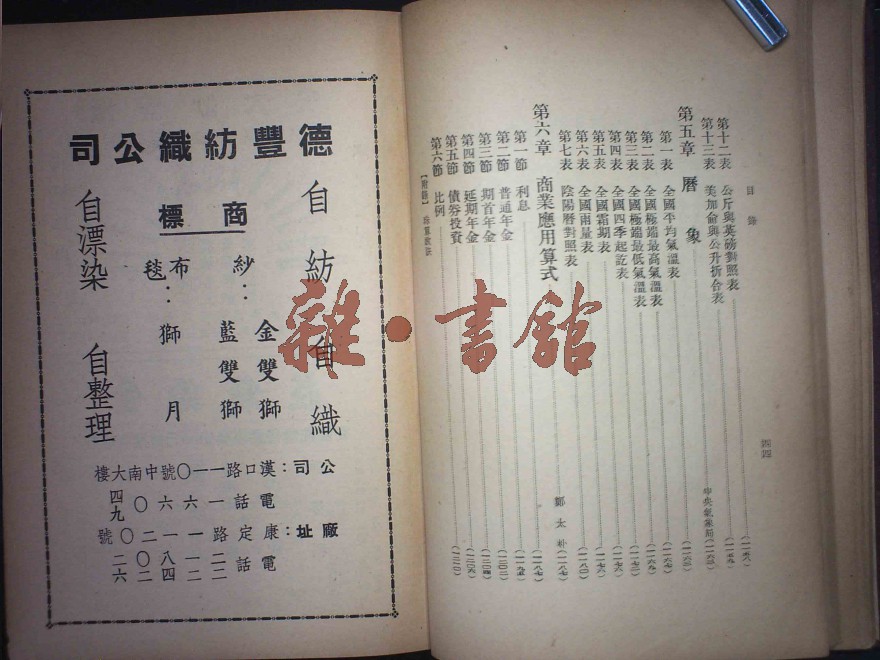 目錄
四四
第十二表 公斤與英磅對照表
第十三表 美加侖與公升折合表
第五章 曆象 中央氣象局
第一表 全國平均氣溫表
第二表 全國極端最高氣溫表
第三表 全國極端最低氣溫表
第四表 全國四季起訖表
第五表 全國霜期表
第六表 全國雨量表
第七表 陰陽曆對照表
第六章 商業應用算式 鄭太朴
第一節 利息
第二節 普通年金
第三節 期首年金
第四節 延期年金
第五節 債券投資
第六節 比例
【附錄】
德豐紡織公司
自紡自織
商標
紗:金雙獅
藍雙獅
布:獅月
毯
自漂染 自整理
公司:漢口路一一〇號中南大樓
電話一六六〇四九
廠址:康定路一一二〇號
電話
雜·書館